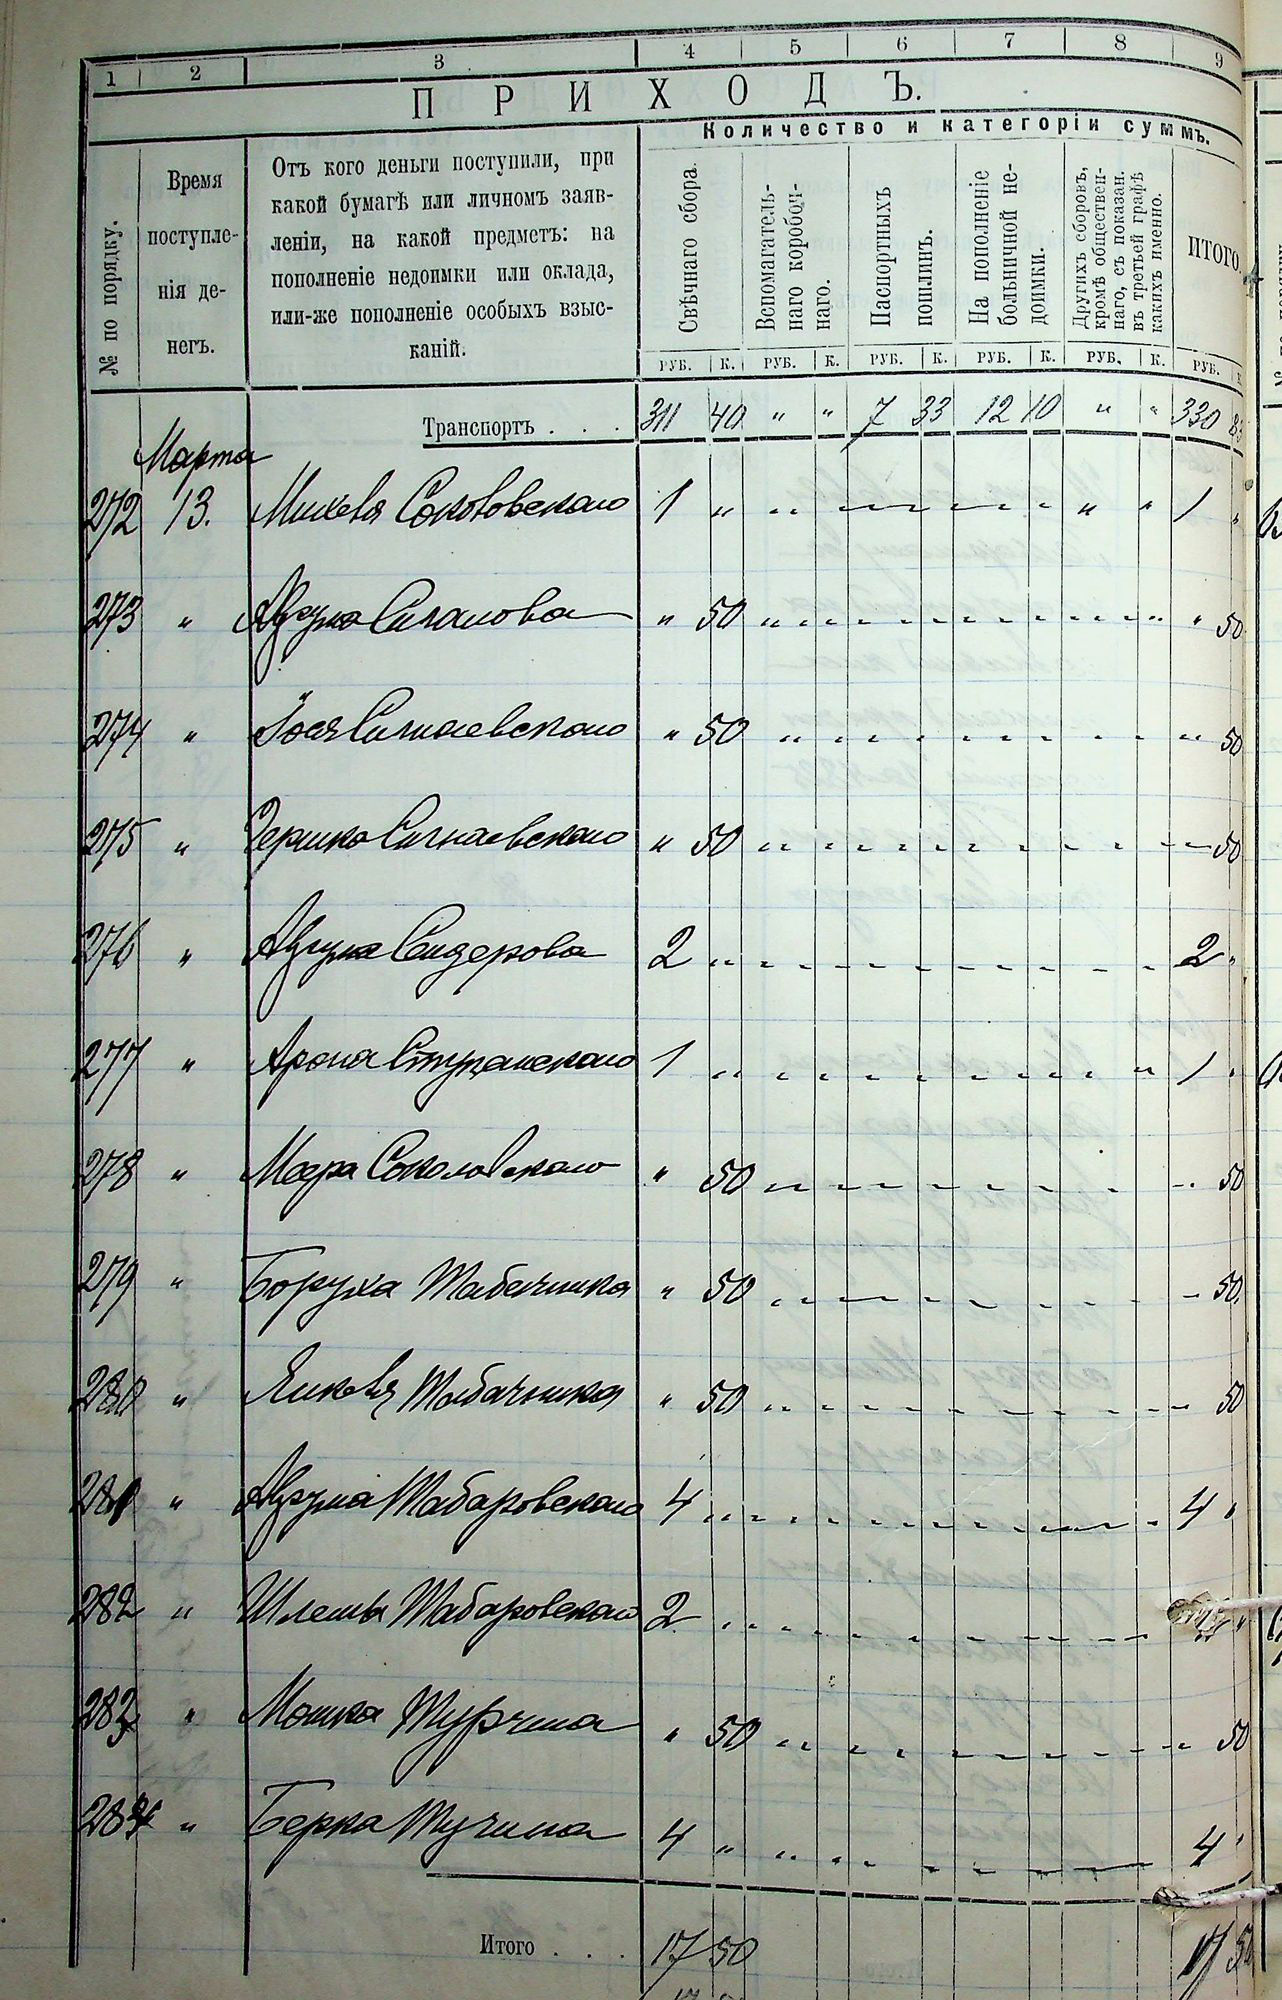 1 2 3 4 5 6 7 8 9
ПРИХОДЪ.
Количество и категоріи суммъ.
№ по порядку.
Время
поступле-
нія де-
негъ.
Отъ кого деньги поступили, при
какой бумагѣ или личномъ заяв-
леніи, на какой предметъ: на
пополненіе недоимки или оклада,
или-же пополненіе особыхъ взыс-
каній.
Свѣчнаго сбора.
Вспомагатель-
наго коробоч-
наго.
Паспортныхъ
пошлинъ.
На пополненіе
больничной не-
доимки.
Другихъ сборовъ,
кромѣ обществен-
наго, съ показан.
въ третьей графѣ
какихъ именно.
ИТОГО.
РУБ. К. РУБ. К. РУБ. К. РУБ. К. РУБ. К. РУБ.
Транспортъ . . . 311 40 " " 7 33 12 10 " " 330 83
Марта
272 13. Михеля Соколовского 1 " " 1 "
273 " Сигалова " 50 " 50
274 " Іося Сигнаевского " 50 " 50
275 " Гершко Сигнаевского " 50 50
276 " Сидерова 2 " 2 "
277 " Арона 1 " 1 "
278 " Меера Соколовского " 50 50
279 " Боруха Табачника " 50 50.
280 " Янкеля Табачника " 50 50
281 " Табаровского 4 " 4 "
282 " Шлемы Табаровского 2 "
283 " Мошка " 50 50
284 " Берка Тучина 4 " 4
Итого . . . 17 50 17 50